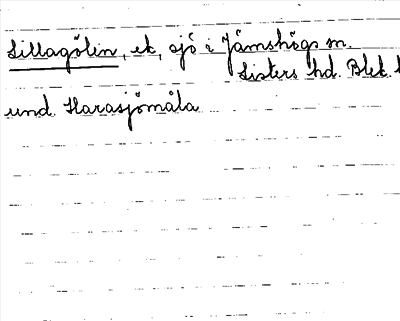 Sillagölen, ek, sjö i Jämshögs sn.
Listers hd. Blek.
und. Harasjömåla